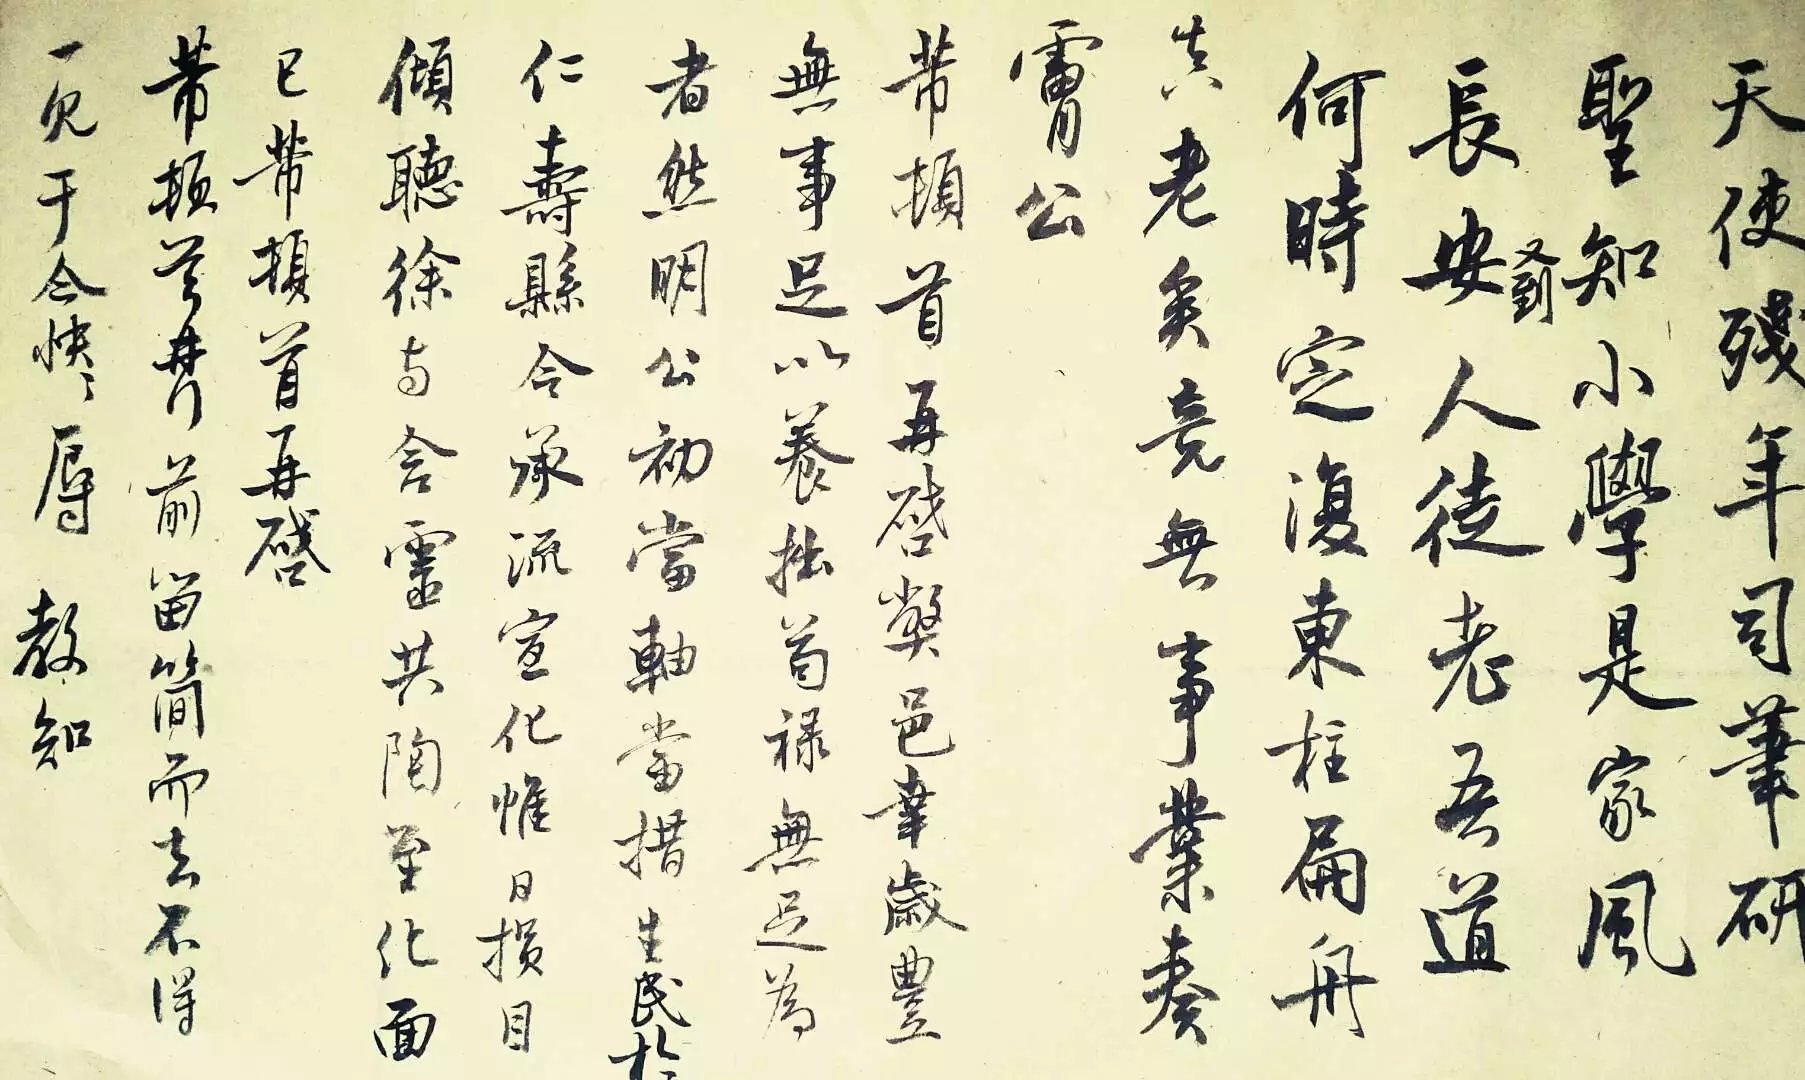 天使殘年司筆研
聖知小學是家風
長安又到人徒老吾道
何時定復東柱扁舟
真老矣竟無事業奏
膚公
芾頓首再啓弊邑幸歲豐
無事足以養拙苟祿無足為
者然明公初當軸當措生民於
仁壽縣令承流宣化惟日損目
傾聽徐與含靈共陶至化而
已芾頓首再啓
芾頓首再拜前留簡而去不得
一見于今怏〻辱 教知